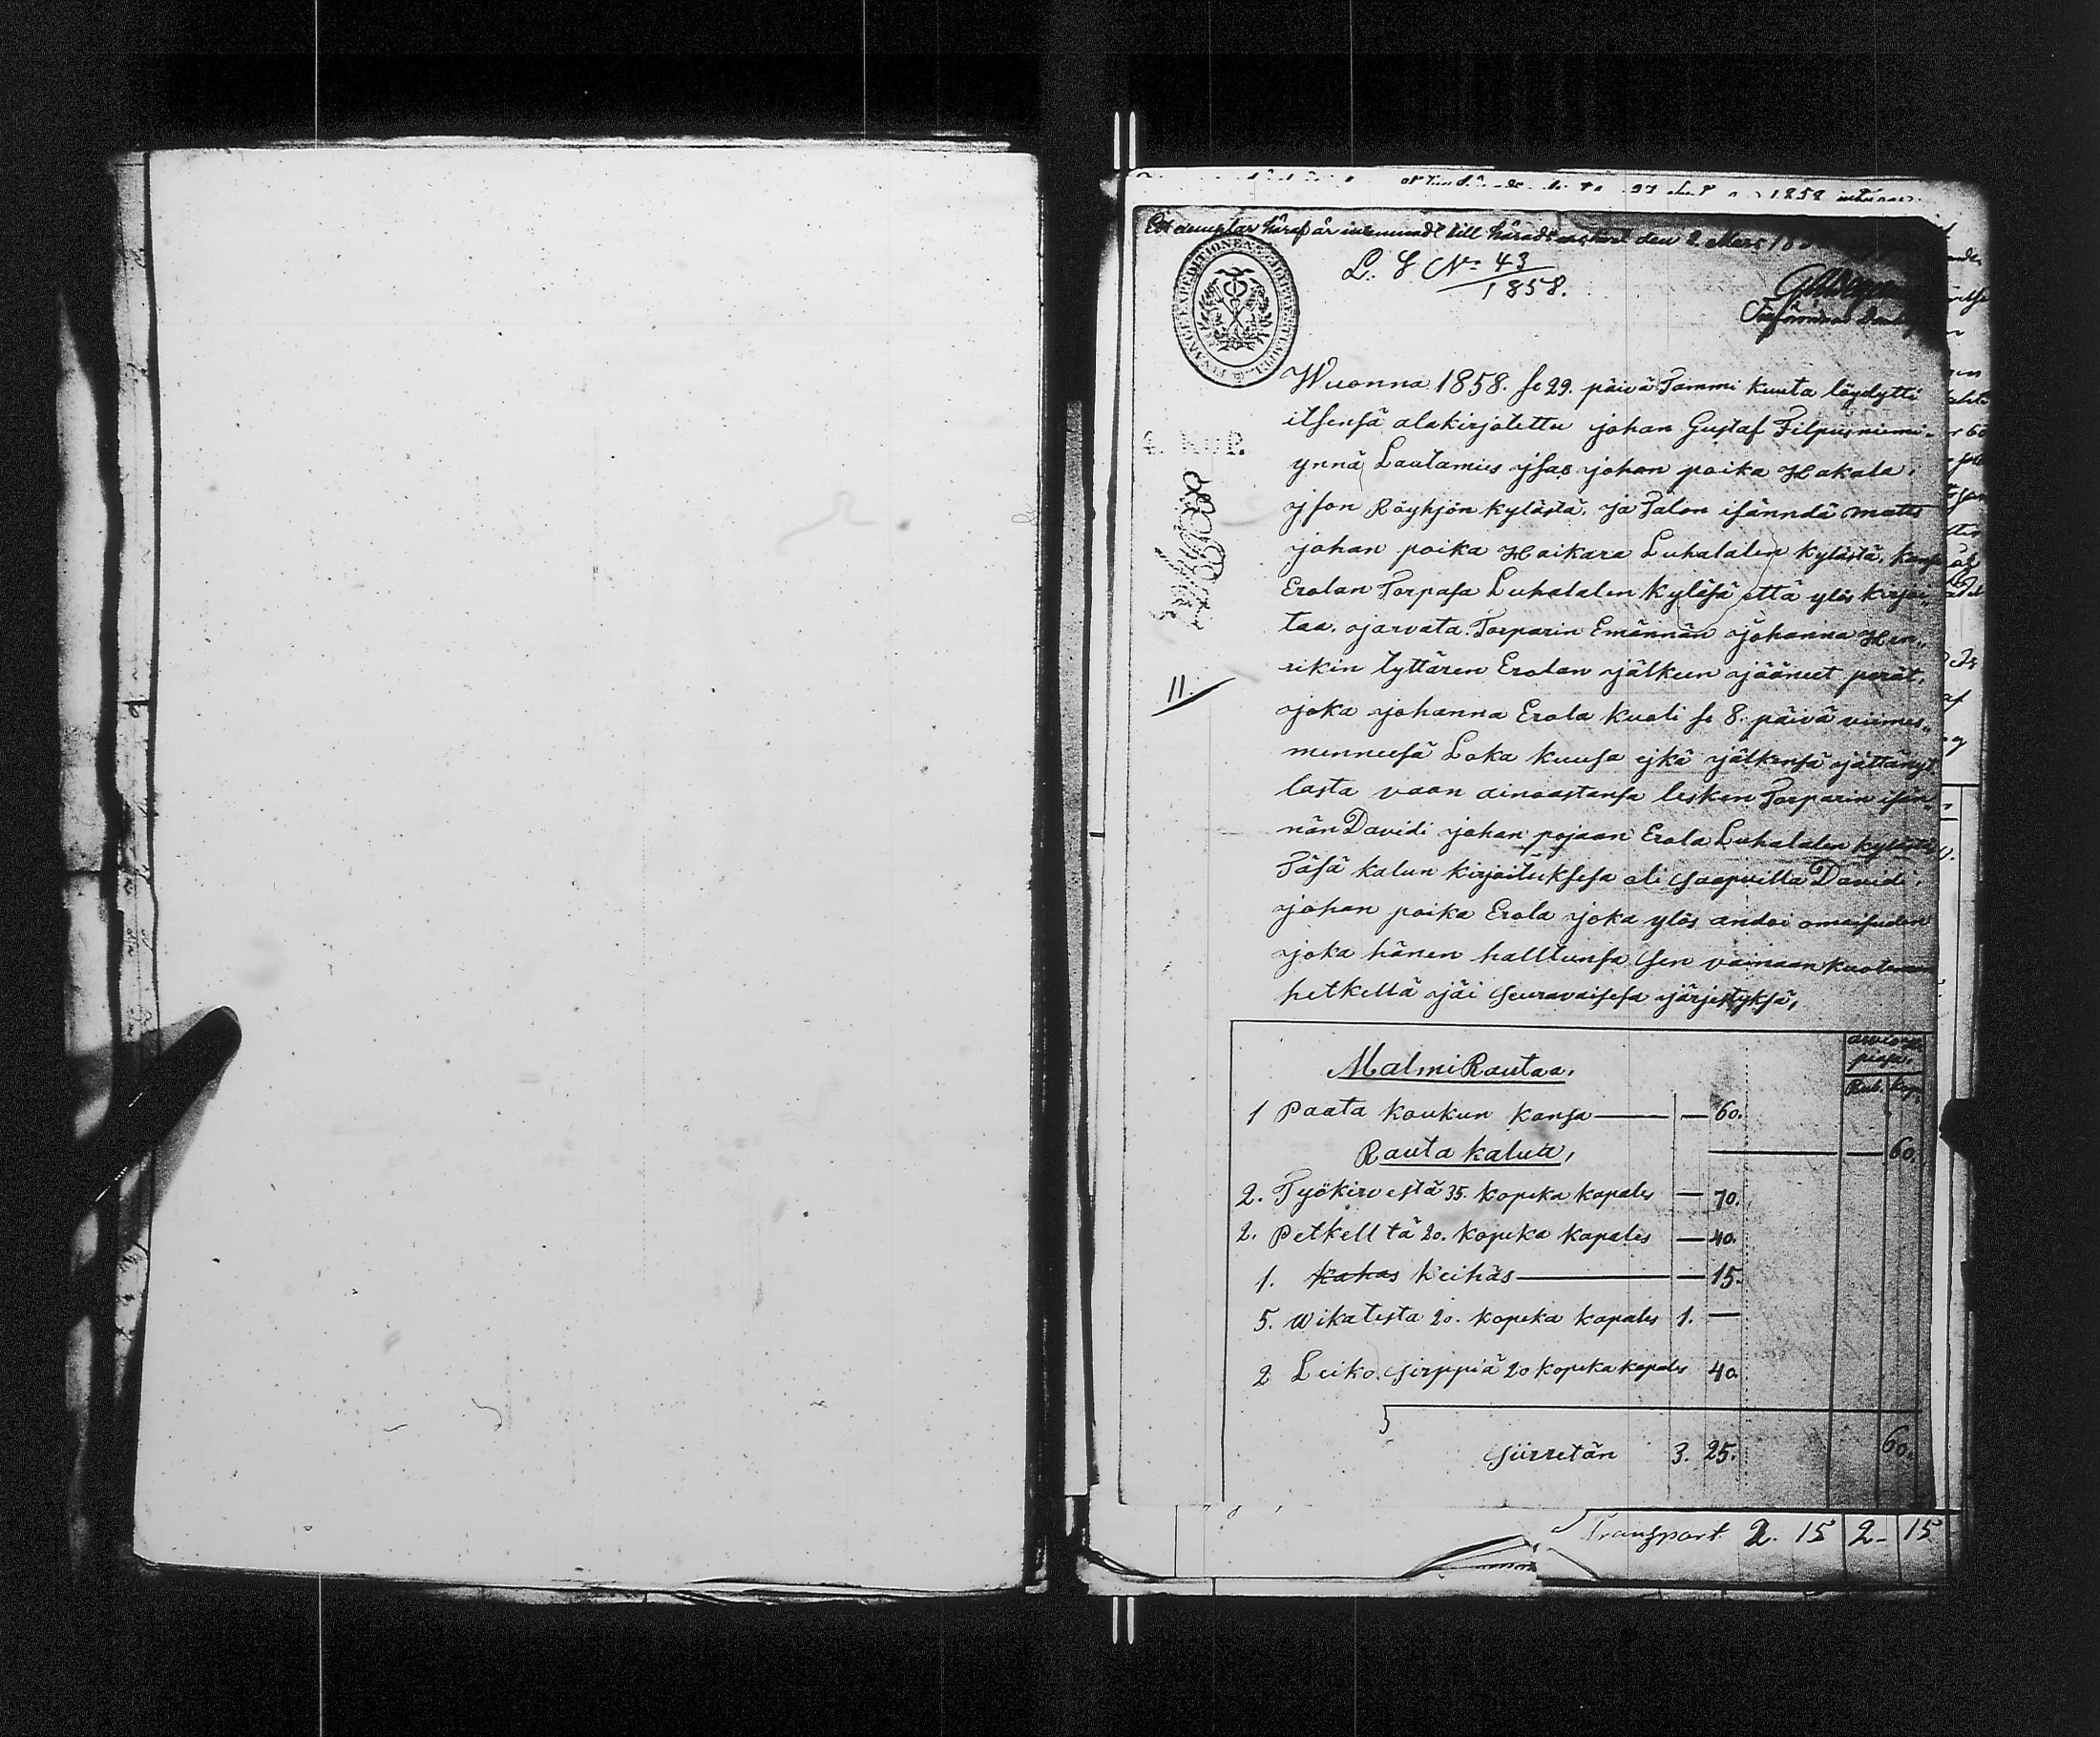 Ett exemplar häraf är insänmdt till häradsarkivet den 2 Mars
L. S. No 43
1858.
FINLANDS EXPEDITIONEN
4. KOP.
11.
Wuonna 1858. se 29. päivä Tammi kuuta löydytti
itsensä alakirjotettu johan Gustaf Filpusniemi
ynnä Lautamies jsac johan poika Hakala.
json Röyhjön kylästä, ja Talon isänndä matts
johan poika Haikara Luhalalen kylästä,
Erolan Torpasa Luhalalen kyläsä että ylös kirjoi„
taa. jarvata. Torparin Emännän johanna Hen„
rikin tyttären Erolan jälkeen jääneet perät,
joka johanna Erola kuoli se 8. päivä viimes„
menneesä Loka kuusa ejkä jälkensä jättänyt
lasta vaan ainoastansa lesken Torparin isän„
nän Davidi johan pojaan Erola Luhalalen kylästä
Täsä kalun kirjoituksesa oli saapuilla Davidi.
johan poika Erola joka ylös andoi omaisuden
joka hänen halltunsa sen vainaan kuoleman
hetkellä jäi seuravaisesa järjestyksä,
arvioza
Malmi Rautaa.
Rub. kop.
1 Paata koukun kansa — — 60.
Rauta kalua, — — 60.
2. Työkirvestä 35. kopeka kapales — 70.
2. Petkelltä 20. kopeka kapales — 40.
1. kahas keihäs — — 15.
5. Wikatesta 20. kopeka kapales 1. —
2 Leiko sirppiä 20 kopeka kapales 40.
siirretän 3. 25. 60.
Transport 2. 15 2- 15